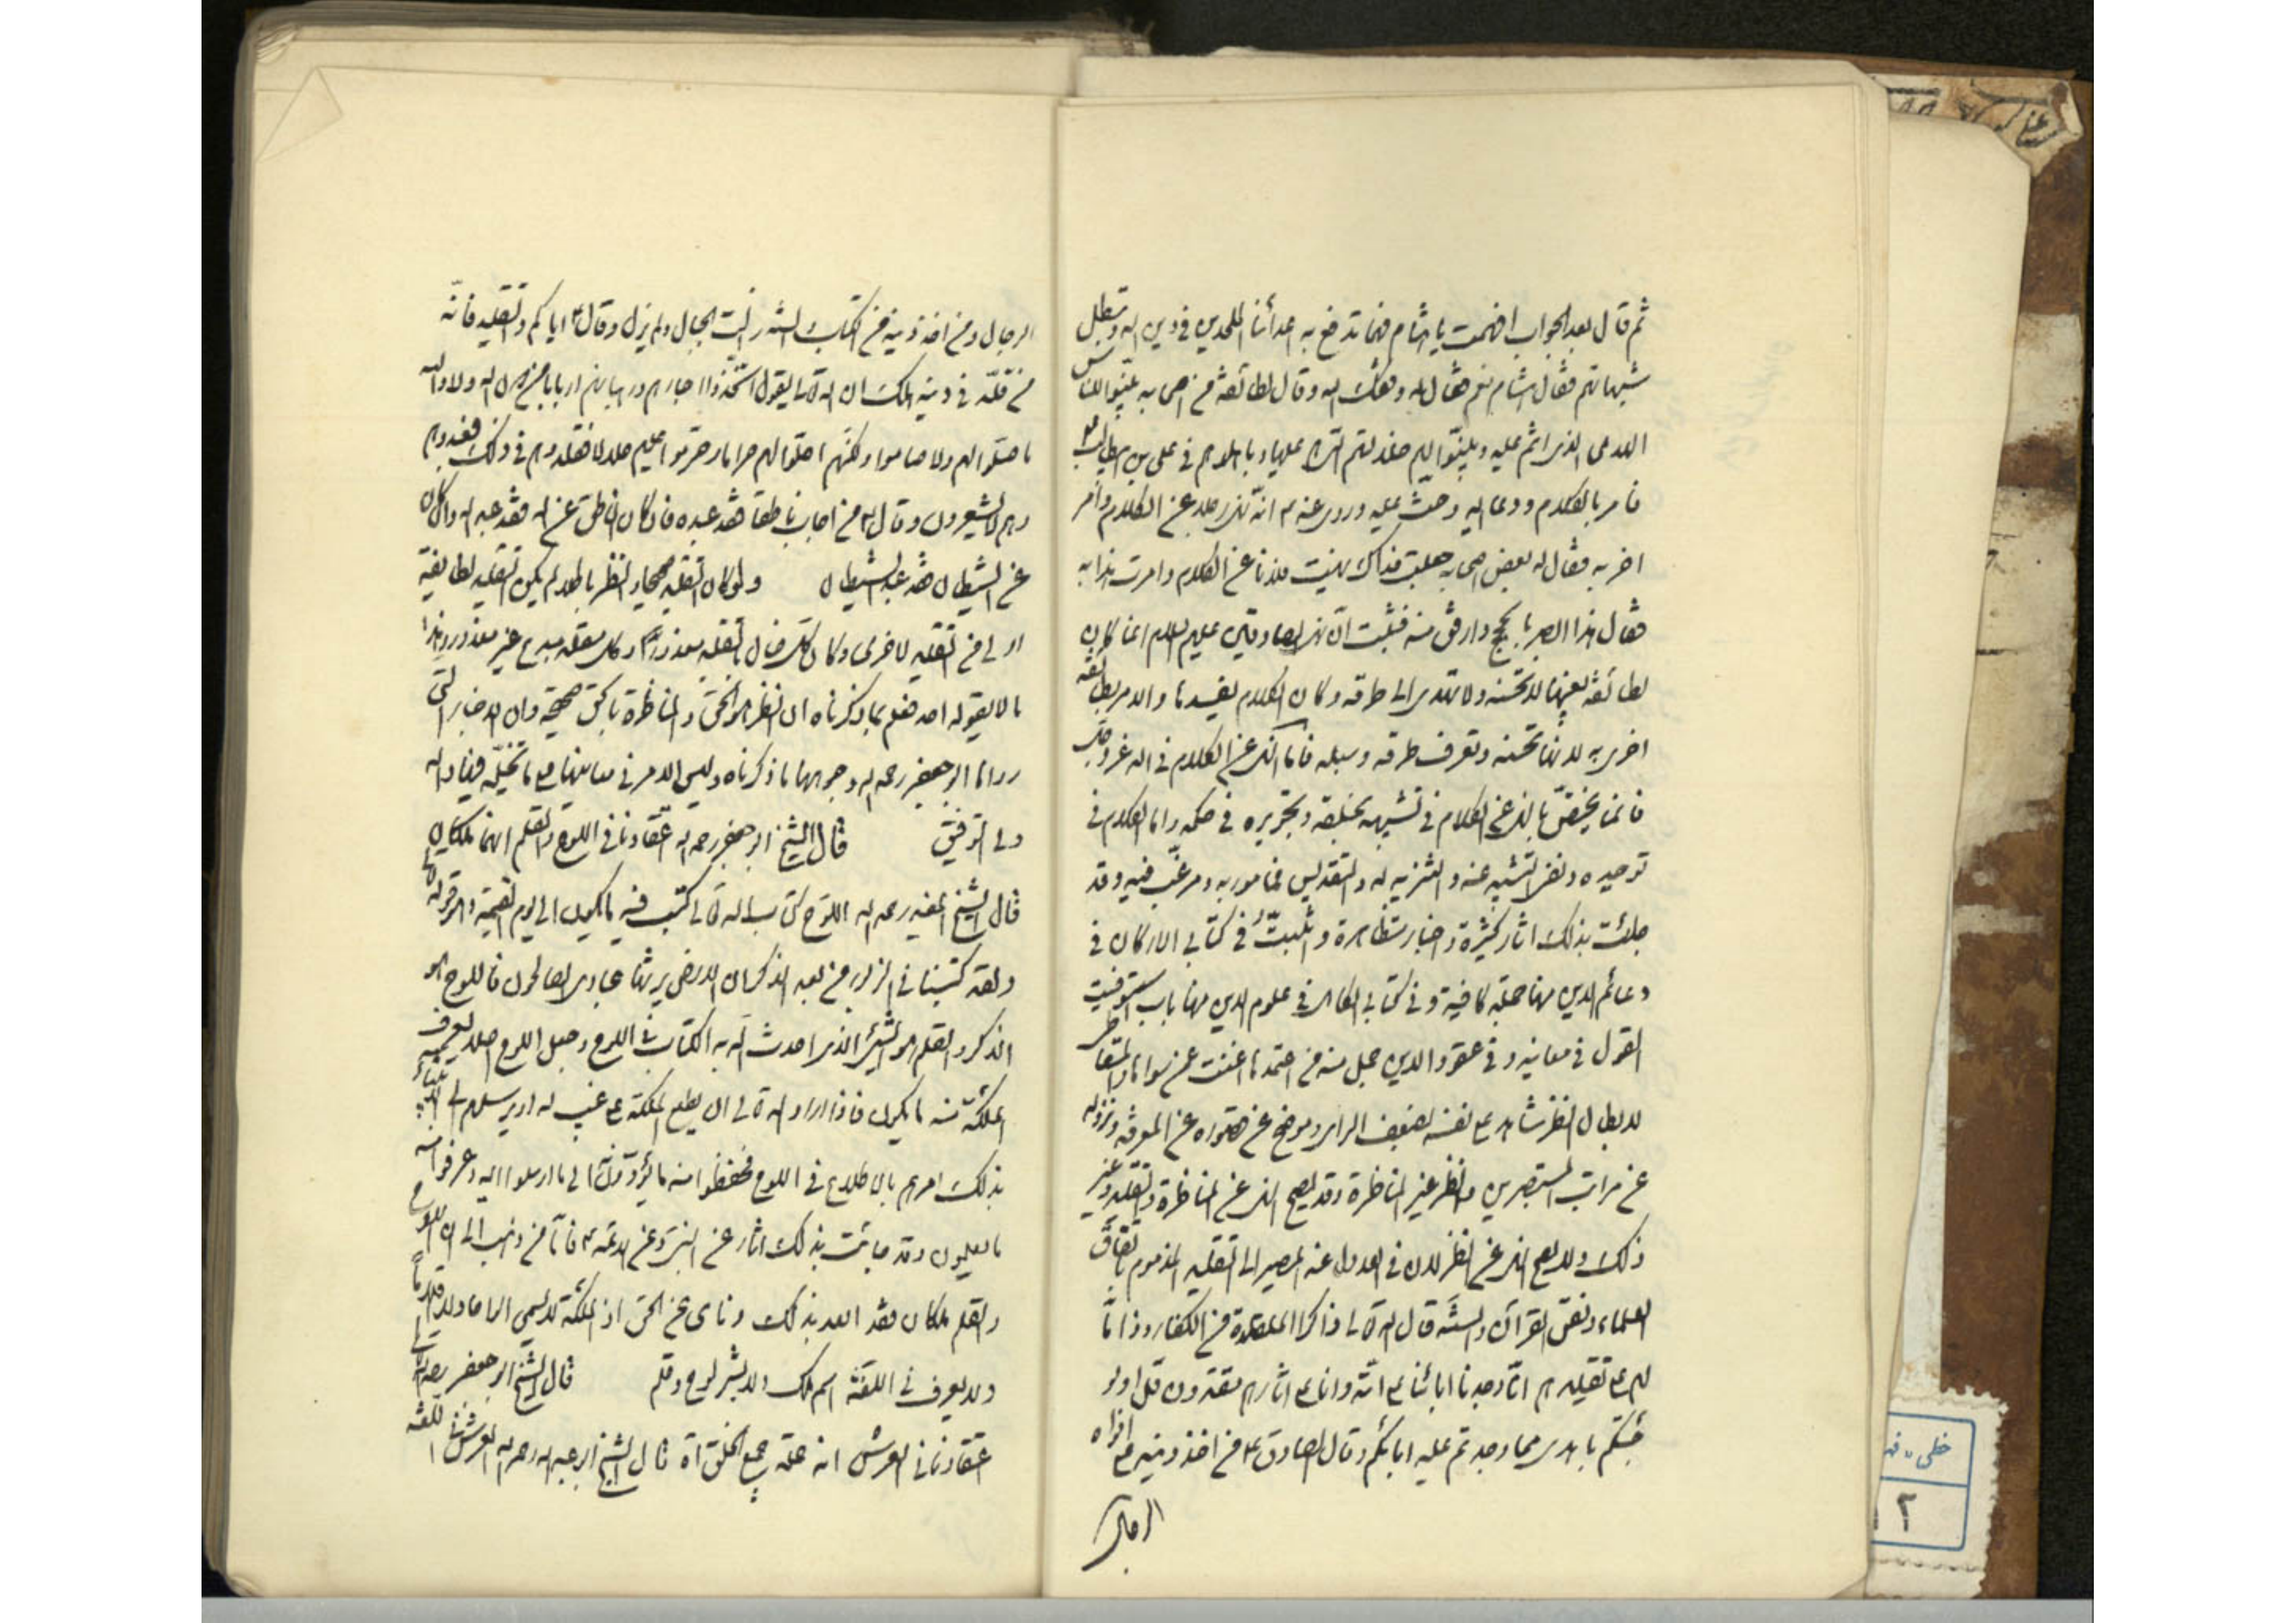 ثم قال بعد الجواب افهمت يا هشام فهما تدفع به اعدائنا الملحدين في دين الله وتبطل
شبهاتهم فقال هشام نعم فقال له وفقك الله وقال لطائفة من اصحابه بينوا للناس
الهدى الذي انتم عليه وبينوا لهم ضلالتهم التي هم عليها وباهلوهم في علي بن ابيطالب ع
فامر بالكلام ودعا اليه وحث عليه وروى عنه ع انه نهى رجلا عن الكلام وامر
اخر به فقال له بعض اصحابه جعلت فداك نهيت فلانا عن الكلام وامرت هذا به
فقال هذا ابصر بالحجج وارفق منه فثبت ان نهي الصادقين عليهم السلام انما كان
لطائفة بعينها لا تحسنه ولا تهتدي الى طرقه وكان الكلام يفسدها والامر لطائفة
اخرى به لانها تحسنه وتعرف طرقه وسبله فاما النهي عن الكلام في الله عز وجل
فانما يختص بالنهي عن الكلام في تشبيهه بخلقه وتجويره في حكمه واما الكلام في
توحيده ونفي التشبيه عنه والتنزيه له والتقديس فمامور به ومرغب فيه وقد
جائت بذلك اثار كثيرة واخبار متظاهرة واثبتّ في كتابي الاركان في
دعائم الدين منها جملة كافية وفي كتابي الكامل في علوم الدين منها باب استوفيت
القول في معانيه وفي عقود الدين جمل منه من اعتمدها اغنت عن سواها والمتعاطي
لابطال النظر شاهد على نفسه بضعف الراى وموضح عن قصوره عن المعرفة ونزوله
عن مراتب المستبصرين والنظر غير المناظرة وقد يصح النهي عن المناظرة وللتقية وغير
ذلك ولا يصح النهي عن النظر لان في العدول عنه المصير الى التقليد المذموم باتفاق
العلماء ونص القرآن والسنة قال الله تعالى ذاكرا المقلدة من الكفار وذاما
لهم على تقليدهم انا وجدنا ابائنا على امة وانا على اثارهم مقتدون قل اولو
جئتكم باهدى مما وجدتم عليه ابائكم وقال الصادق ع من اخذ دينه من افواه
الرجال
الرجال ومن اخذ دينه من الكتاب والسنة زالت الجبال ولم يزل وقال ع اياكم والتقليد فانه
من قلد في دينه هلك ان الله تعالى يقول اتخذوا احبارهم ورهبانهم اربابا من دون الله ولا والله
ما صلوا لهم ولا صاموا ولكنهم احلوا لهم حراما وحرموا عليهم حلالا فقلدوهم في ذلك فعبدوهم
وهم لا يشعرون وقال ع من اجاب ناطقا فقد عبده فان كان الناطق عن الله فقد عبد الله وان كان
عن الشيطان فقد عبد الشيطان ولو كان التقليد صحيحا والنظر باطلا لم يكن التقليد لطائفة
اولى من التقليد لاخرى وكان كل ضال بالتقليد معذورا وكل مقلد مبدع غير معذور وهذا
ما لا يقوله احد فعلم بما ذكرناه ان النظر هو الحق والمناظرة بالحق صحيحة وان الاخبار التي
رواها ابو جعفر رحمه الله وجوهها ما ذكرناه وليس الامر في معانيها على ما تخيله فيها والله
ولي التوفيق قال الشيخ ابو جعفر رحمه الله اعتقادنا في اللوح والقلم انهما ملكان
قال الشيخ المفيد رحمه الله اللوح كتاب الله تعالى كتب فيه ما يكون الى يوم القيمة وهو قوله تعالى
ولقد كتبنا في الزبور من بعد الذكر ان الارض يرثها عبادي الصالحون فاللوح هو
الذكر والقلم هو الشيء الذي احدث الله به الكتابة في اللوح وجعل اللوح اصلا ليعرف
الملئكة منه ما يكون فاذا اراد الله تعالى ان يطلع الملئكة على غيب له او يرسلهم الى الانبياء
بذلك امرهم بالاطلاع في اللوح فحفظوا منه ما يؤدونه الى ما ارسلوا اليه وعرفوا منه
ما يعملون وقد جائت بذلك اثار عن النبي ص وعن الائمة ع فاما من ذهب الى ان اللوح
والقلم ملكان فقد ابعد بذلك وناى عن الحق اذ الملئكة لا تسمى الواحا ولا اقلاما
ولا يعرف في اللغة اسم ملك ولا بشر لوح وقلم قال الشيخ ابو جعفر رحمه الله
اعتقادنا في العرش انه جملة جميع الخلق اه قال الشيخ ابو عبد الله رحمه الله العرش في اللغة